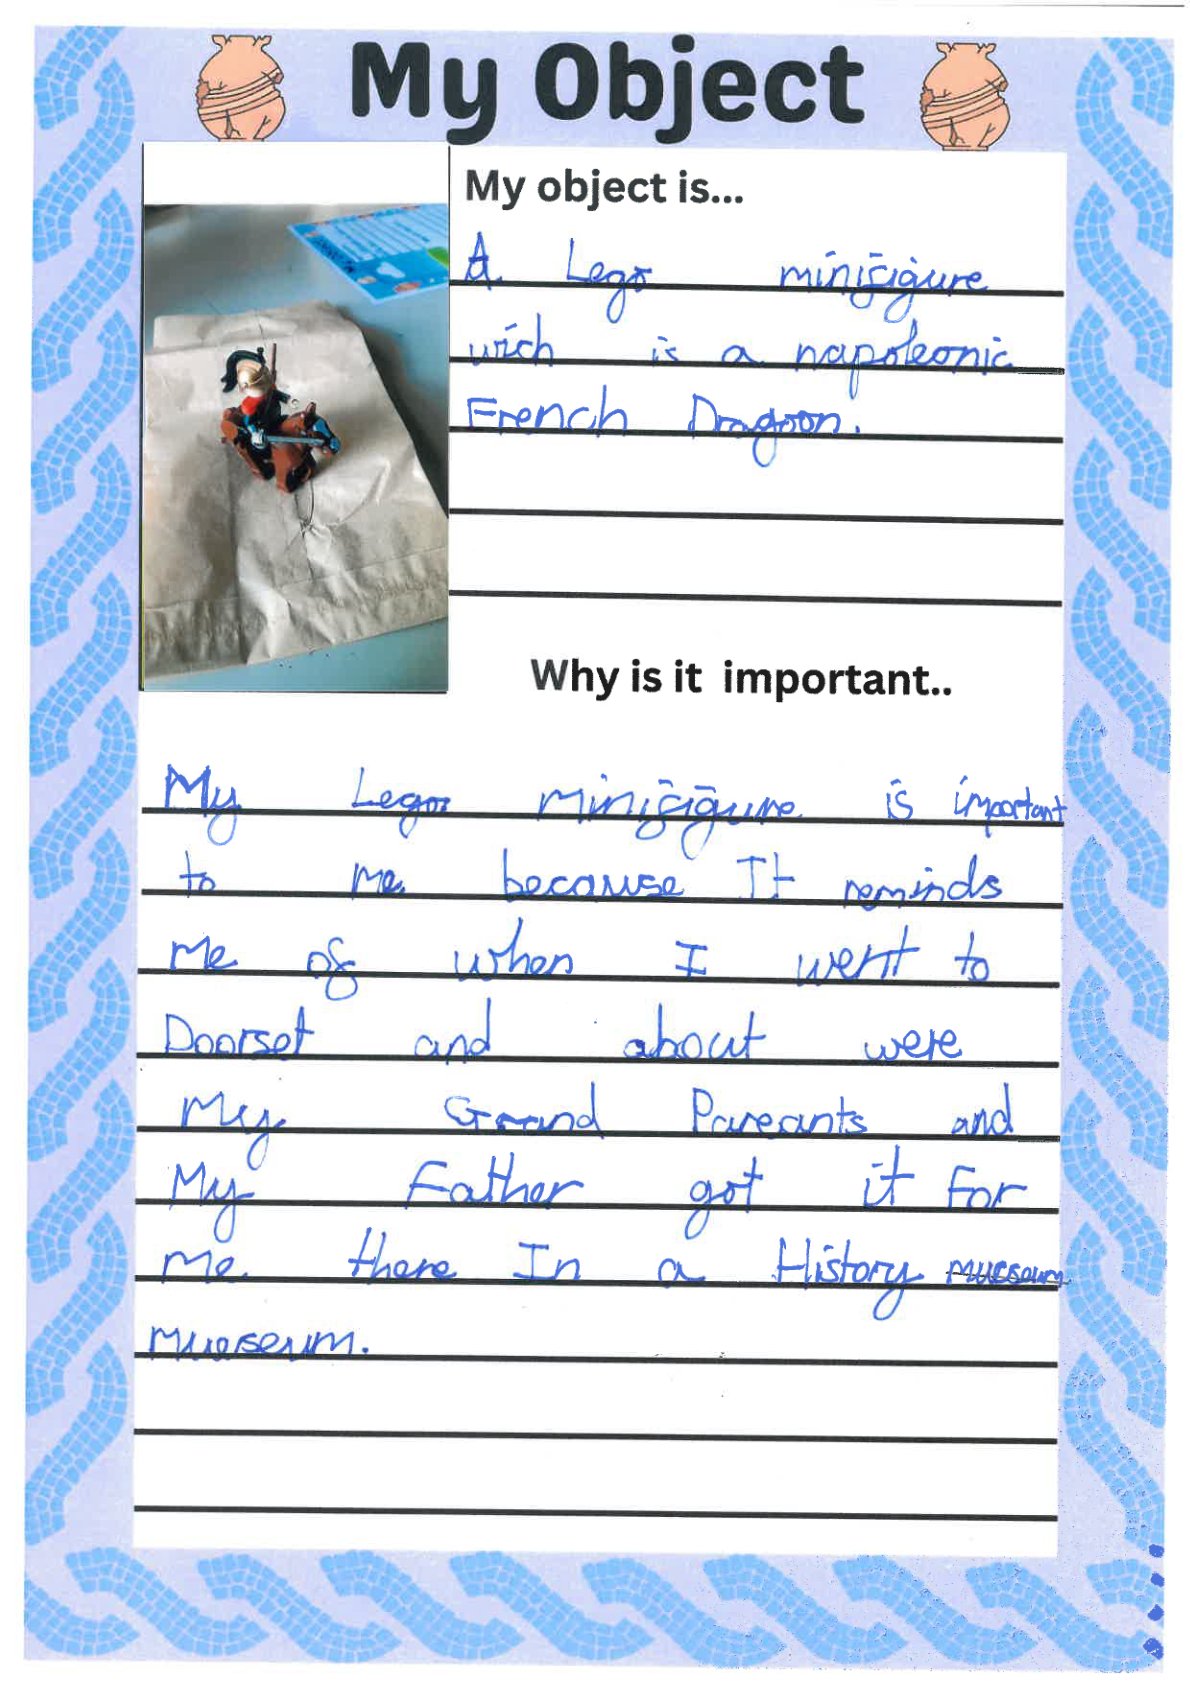 My Object
My object is...
A Lego minifigure
wich is a napoleonic
French Dragoon.
Why is it important..
My Lego minifigure is important
to me because It reminds
me of when I went to
Doorset and about were
My Grand Pareants and
My Father got it For
me there In a History museoum
mueseum.